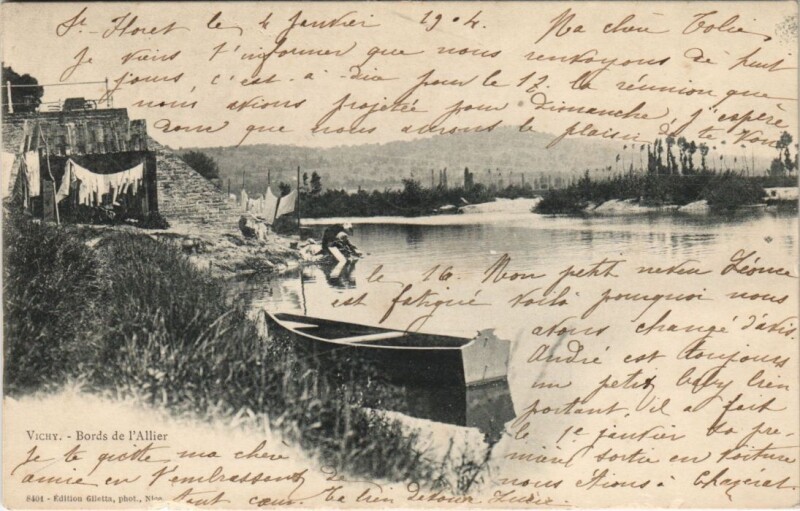 St-Floret le 4 Janvier 1904.
Ma chère Tolie,
Je viens t'informer que nous renvoyons de huit
jours, c'est-à-dire pour le 17 la réunion que
nous avions projetée pour Dimanche, j'espère
donc que nous aurons le plaisir de te voir
le 16. Mon petit neveu Léonce
est fatigué voilà pourquoi nous
avons changé d'avis.
André est toujours
un petit baby bien
portant, il a fait
le 1er janvier sa pre-
mière sortie en voiture
nous étions à
Je te quitte ma chère
amie en t'embrassant de
tout cœur. Ta bien dévouée
VICHY. - Bords de l'Allier
8401 - Édition Giletta, phot., Nice